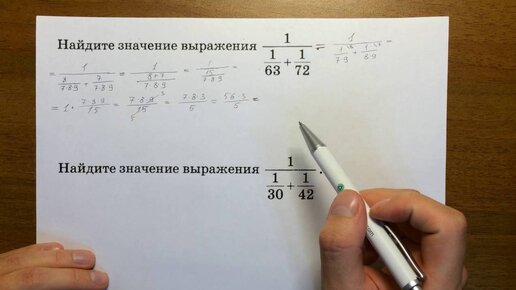 Найдите значение выражения 1/(1/63 + 1/72) = 1/(1\8/7·9 + 1\7/8·9) =
= 1/(8/7·8·9 + 7/7·8·9) = 1/((8+7)/7·8·9) = 1/(15/7·8·9) =
= 1 · 7·8·9/15 = 7·8·9 3/15 5 = 7·8·3/5 = 56·3/5 =
Найдите значение выражения 1/(1/30 + 1/42).